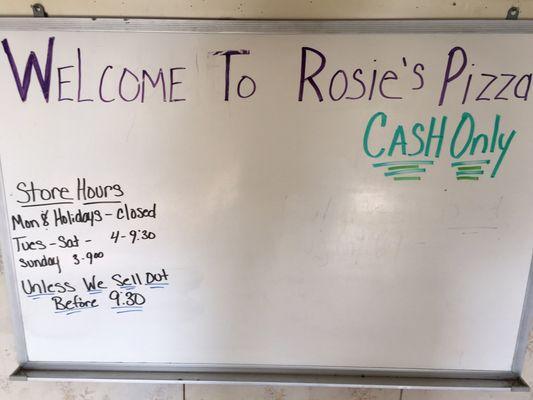 WELCOME TO ROSIE'S PIZZA
CASH Only
Store Hours
Mon & Holidays - closed
Tues - Sat - 4-9:30
Sunday 3-9:00
Unless We Sell Out
Before 9:30